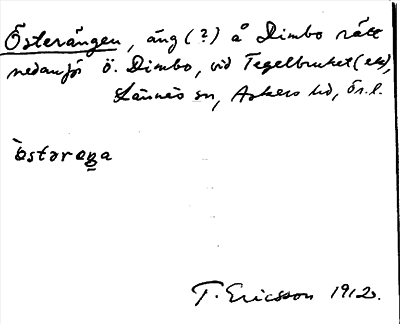 Österängen, äng (?) å Dimbo rätt
nedanför Ö. Dimbo, vid Tegelbruket (ek),
Lännäs sn, Askers hd, Ör. l.
östəraŋa
T. Ericsson 1912.